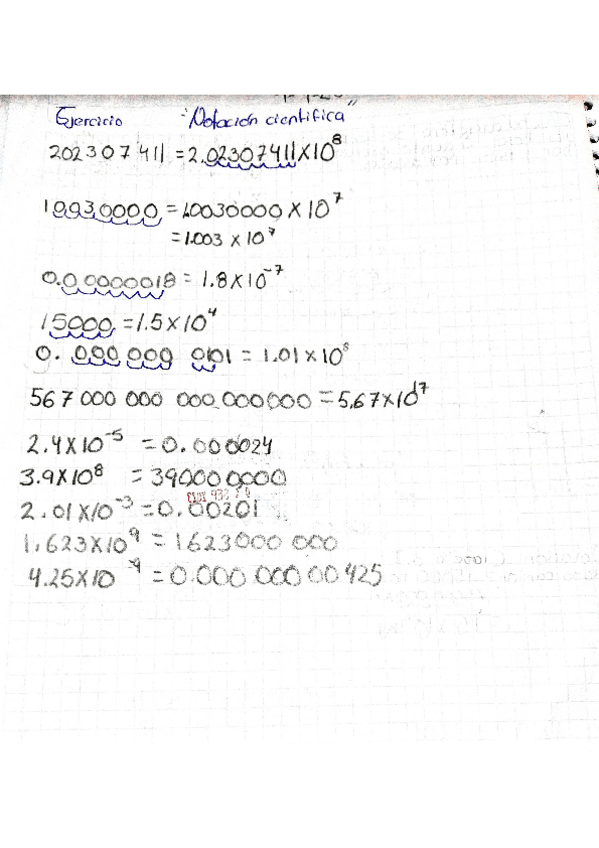 Ejercicio Notación cientifica
202307411 = 2.02307411X10⁸
10030000 = 1.0030000 X 10⁷
= 1.003 X 10⁷
0.00000018 = 1.8X10⁻⁷
15000 = 1.5X10⁴
0. 000 000 0101 = 1.01X10⁸
567 000 000 000 000000 = 5,67X10¹⁷
2.4X10⁻⁵ = 0.000024
3.9X10⁸ = 390000 0000
2.01X10⁻³ = 0.00201
1,623X10⁹ = 1623000 000
4.25X10⁻⁹ = 0.000 000 00 425